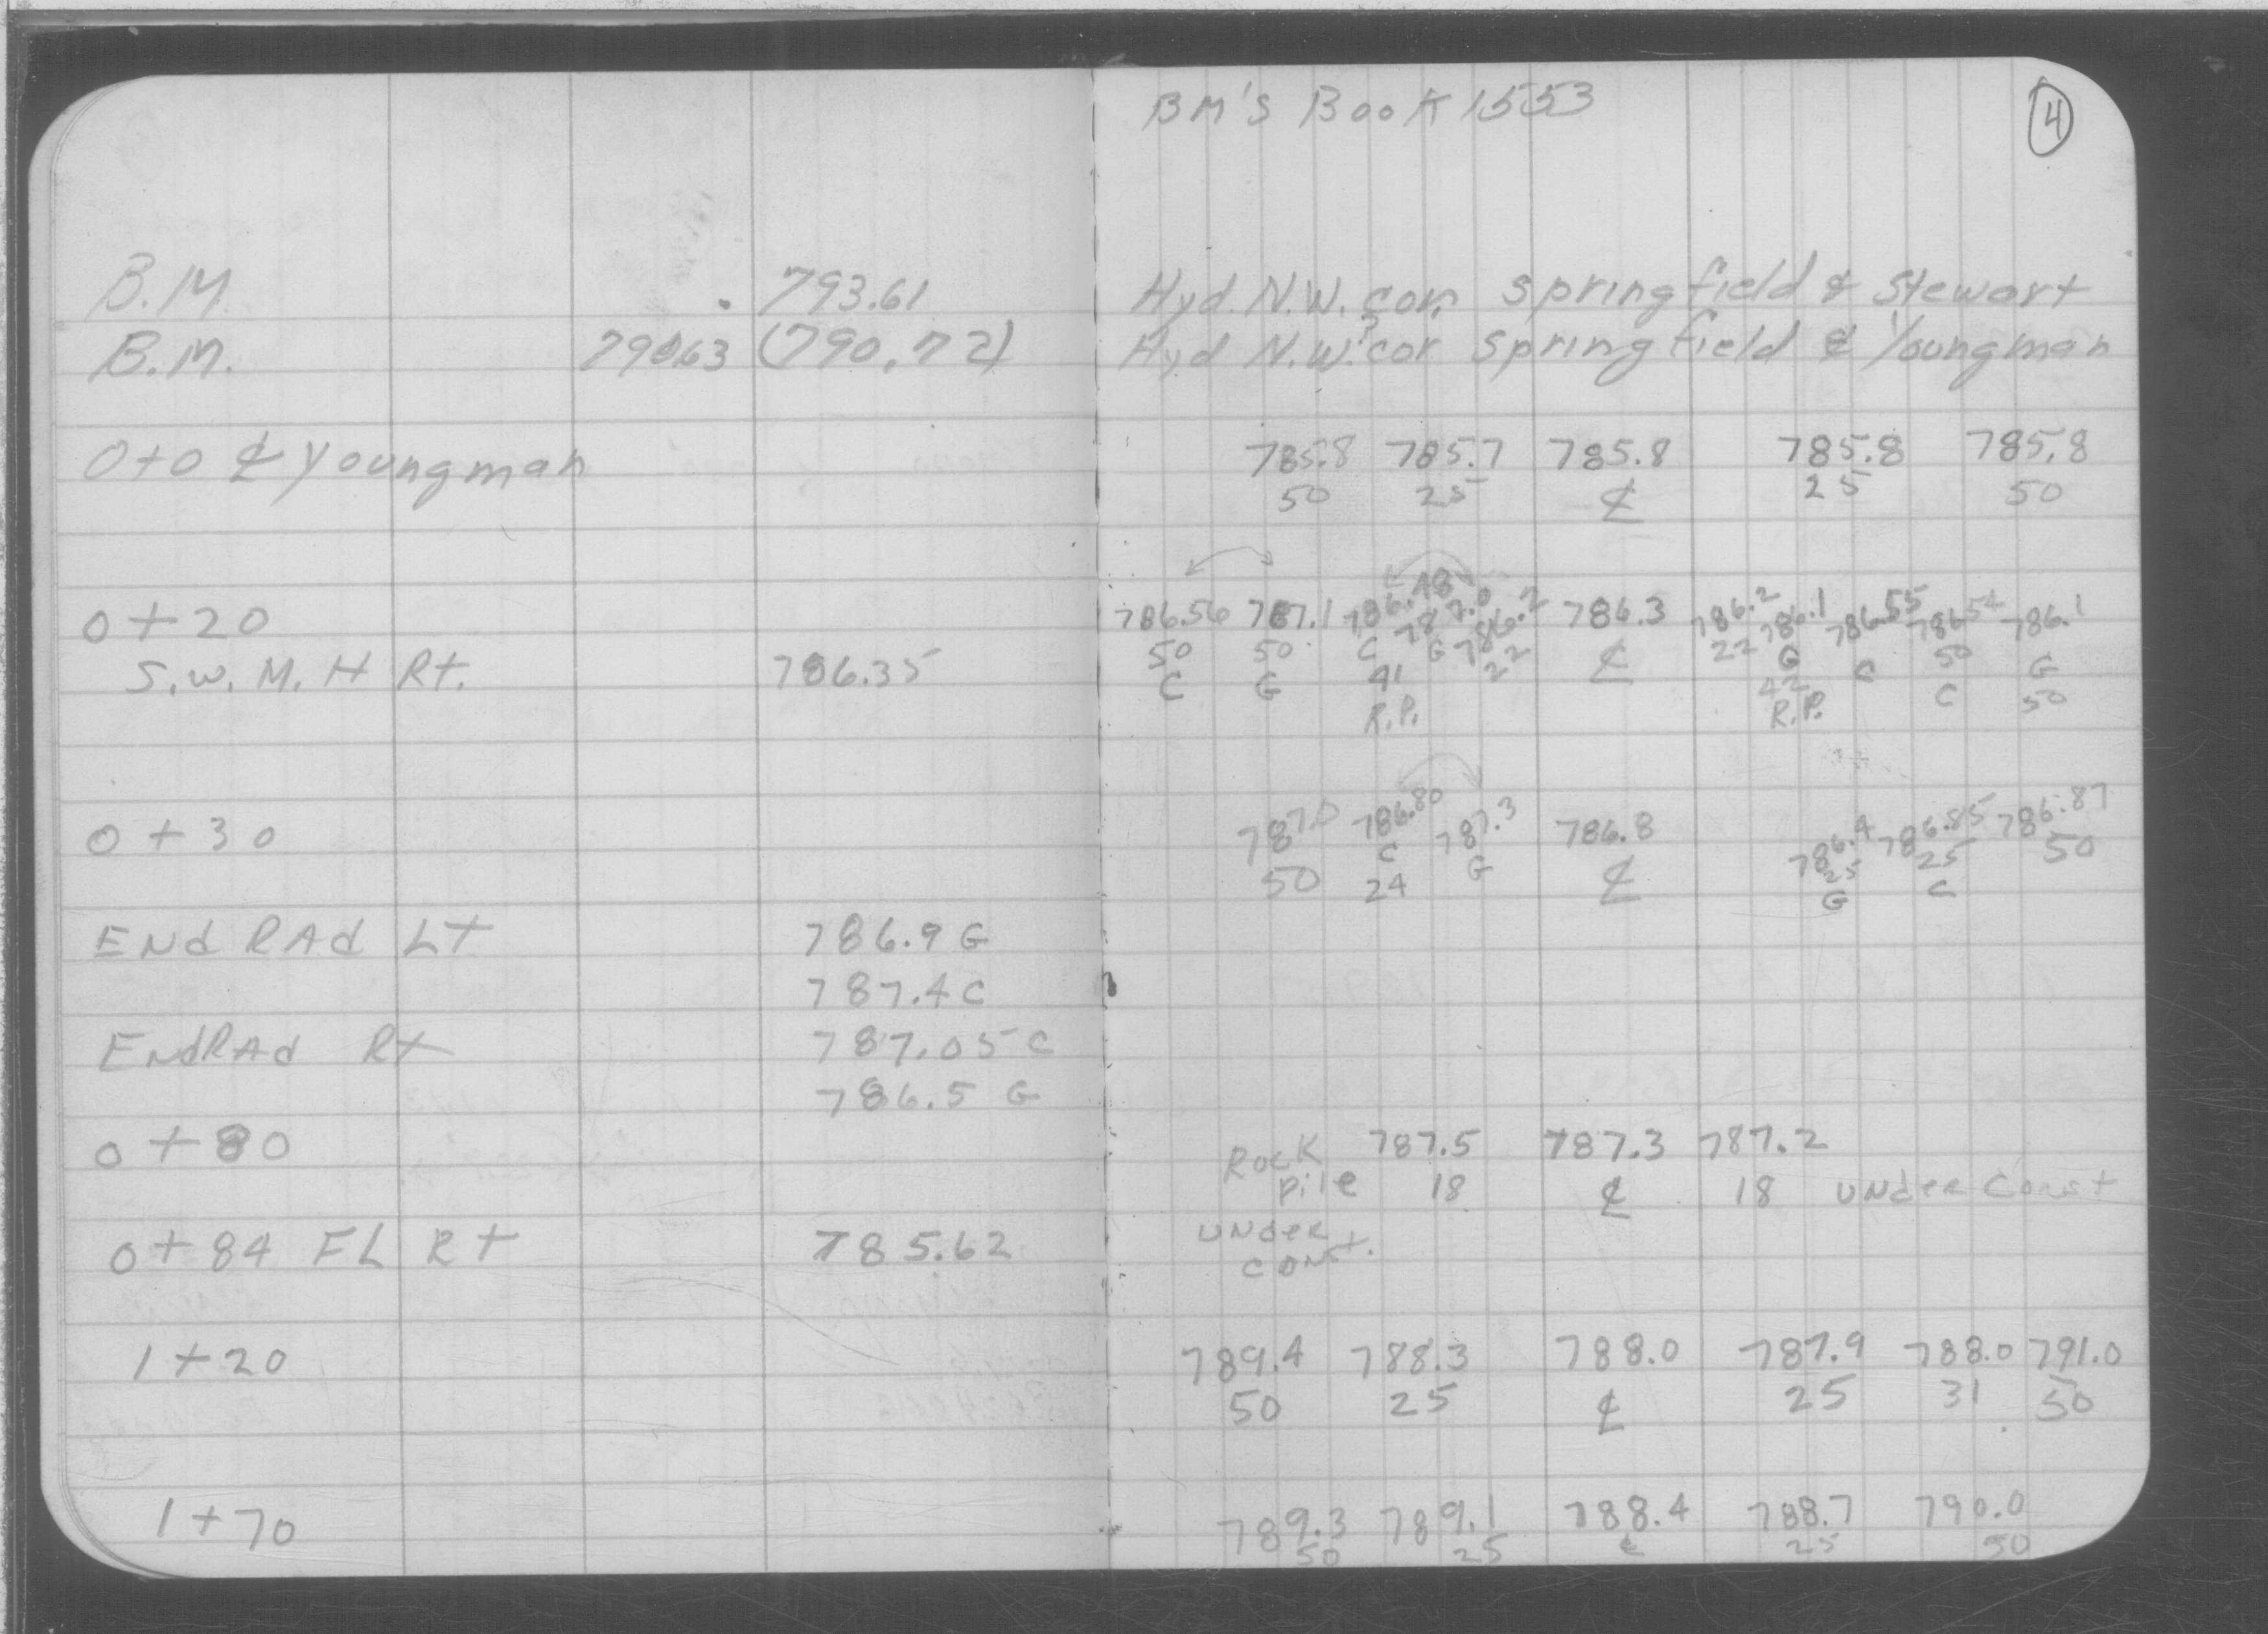 BM'S Book 1553
4
B.M. 793.61 Hyd. N.W. cor. Springfield & Stewart
B.M. 790.63 (790.72) Hyd N.W. cor Springfield & Youngman
0+0 ℄ Youngman 785.8 785.7 785.8 785.8 785.8
50 25 ℄ 25 50
0+20 786.56 787.1 786.48 787.0 786.2 786.3 786.2 786.1 786.55 786.54 786.1
S.W. M.H Rt. 786.35 50 50 C G 22 ℄ 22 G C 50 G
C G 41 42 C 50
R.P. R.P.
0+30 787.0 786.80 787.3 786.8 786.4 786.85 786.87
50 C G ℄ 25 25 50
24 G C
End RAd Lt 786.9 G
787.4 C
EndRAd Rt 787.05 C
786.5 G
0+80 Rock 787.5 787.3 787.2
pile 18 ℄ 18 Under Const
0+84 FL Rt 785.62 Under
Const.
1+20 789.4 788.3 788.0 787.9 788.0 791.0
50 25 ℄ 25 31 50
1+70 789.3 789.1 788.4 788.7 790.0
50 25 ℄ 25 50